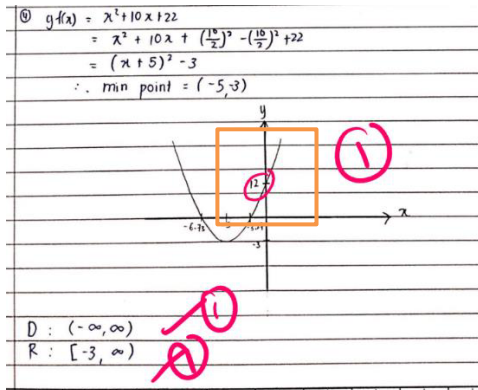 ④ gf(x) = x²+10x+22
= x² + 10x + (10/2)² - (10/2)² +22
= (x + 5)² - 3
∴ min point = (-5,-3)
y
①
12
x
-6.73
-3
D : (-∞,∞) ①
R : [-3, ∞)